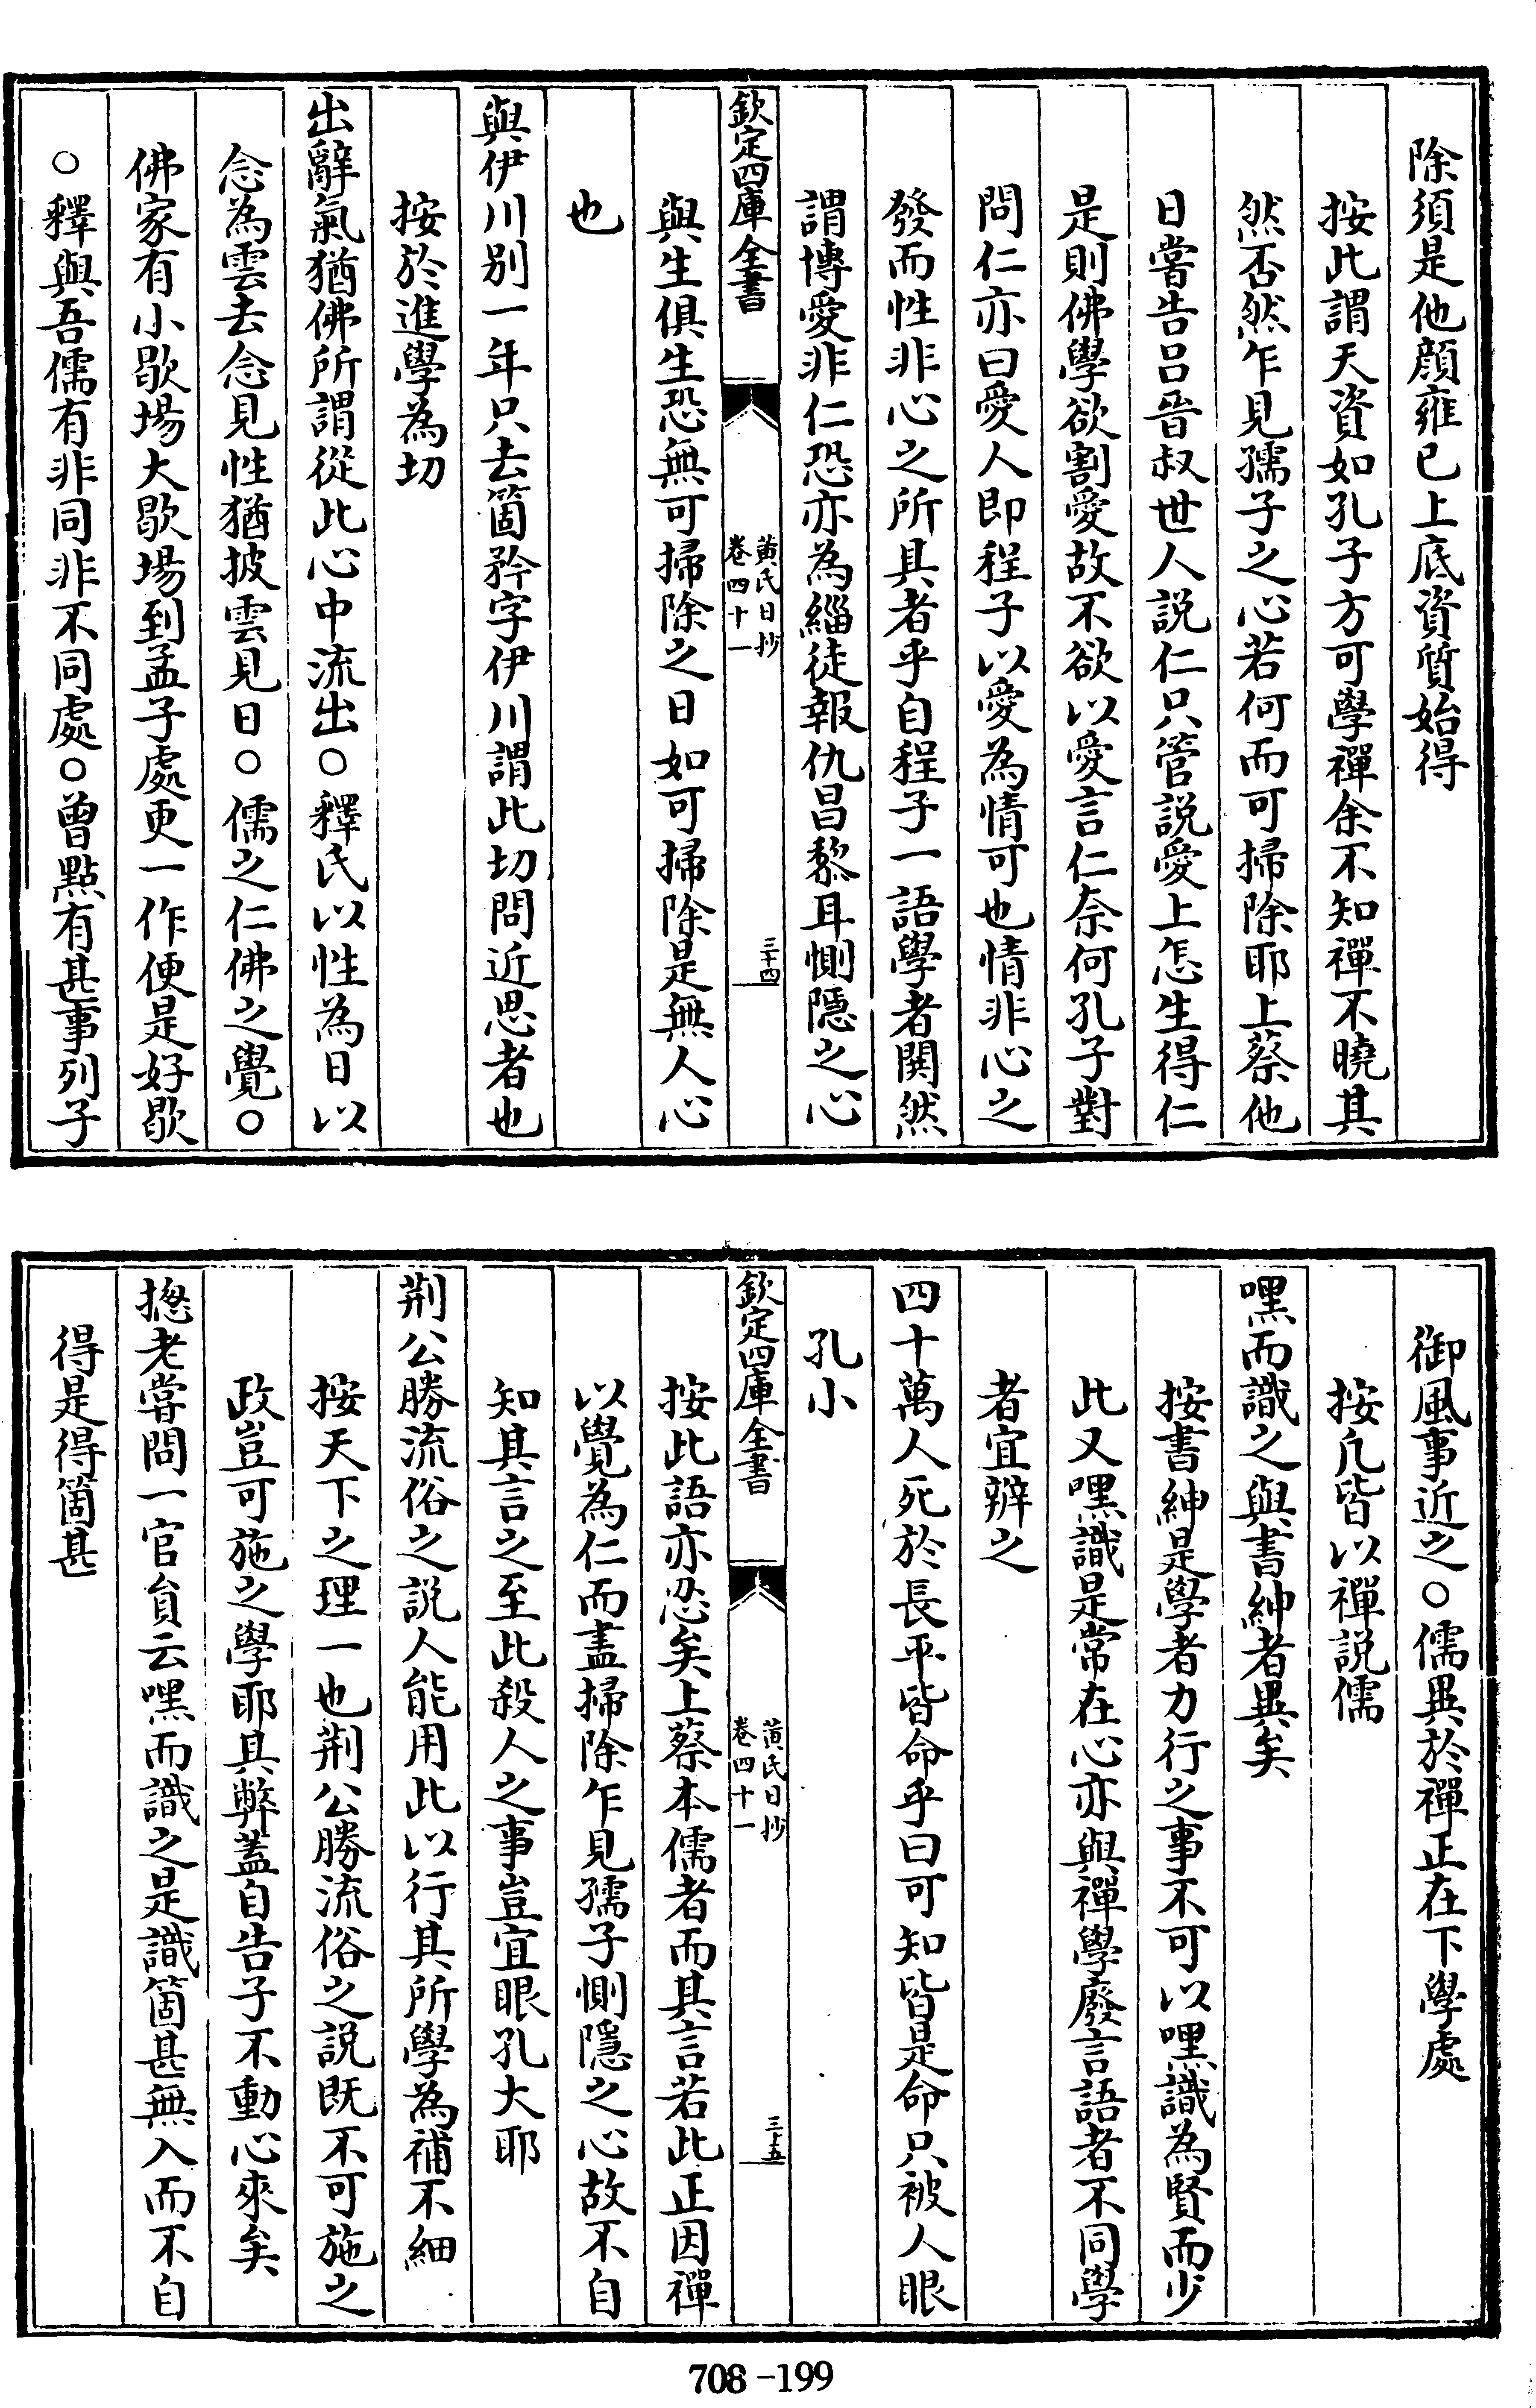 除須是他顔雍已上底資質始得
按此謂天資如孔子方可學禪余不知禪不曉其
然否然乍見孺子之心若何而可掃除耶上蔡他
日嘗告吕晉叔世人説仁只管説愛上怎生得仁
是則佛學欲割愛故不欲以愛言仁奈何孔子對
問仁亦曰愛人即程子以愛為情可也情非心之
發而性非心之所具者乎自程子一語學者閧然
謂博愛非仁恐亦為緇徒報仇昌黎耳惻隱之心
欽定四庫全書
黄氏日抄
卷四十一
三十四
與生俱生恐無可掃除之日如可掃除是無人心
也
與伊川别一年只去箇矜字伊川謂此切問近思者也
按於進學為切
出辭氣猶佛所謂從此心中流出○釋氏以性為日以
念為雲去念見性猶披雲見日○儒之仁佛之覺○
佛家有小歇場大歇場到孟子處更一作便是好歇
○釋與吾儒有非同非不同處○曾點有甚事列子
御風事近之○儒異於禪正在下學處
按凡皆以禪説儒
嘿而識之與書紳者異矣
按書紳是學者力行之事不可以嘿識為賢而少
此又嘿識是常在心亦與禪學廢言語者不同學
者宜辨之
四十萬人死於長平皆命乎曰可知皆是命只被人眼
孔小
欽定四庫全書
黄氏日抄
卷四十一
三十五
按此語亦恐矣上蔡本儒者而其言若此正因禪
以覺為仁而盡掃除乍見孺子惻隱之心故不自
知其言之至此殺人之事豈宜眼孔大耶
荆公勝流俗之説人能用此以行其所學為補不細
按天下之理一也荆公勝流俗之説既不可施之
政豈可施之學耶其弊蓋自告子不動心來矣
摠老嘗問一官負云嘿而識之是識箇甚無入而不自
得是得箇甚
708-199